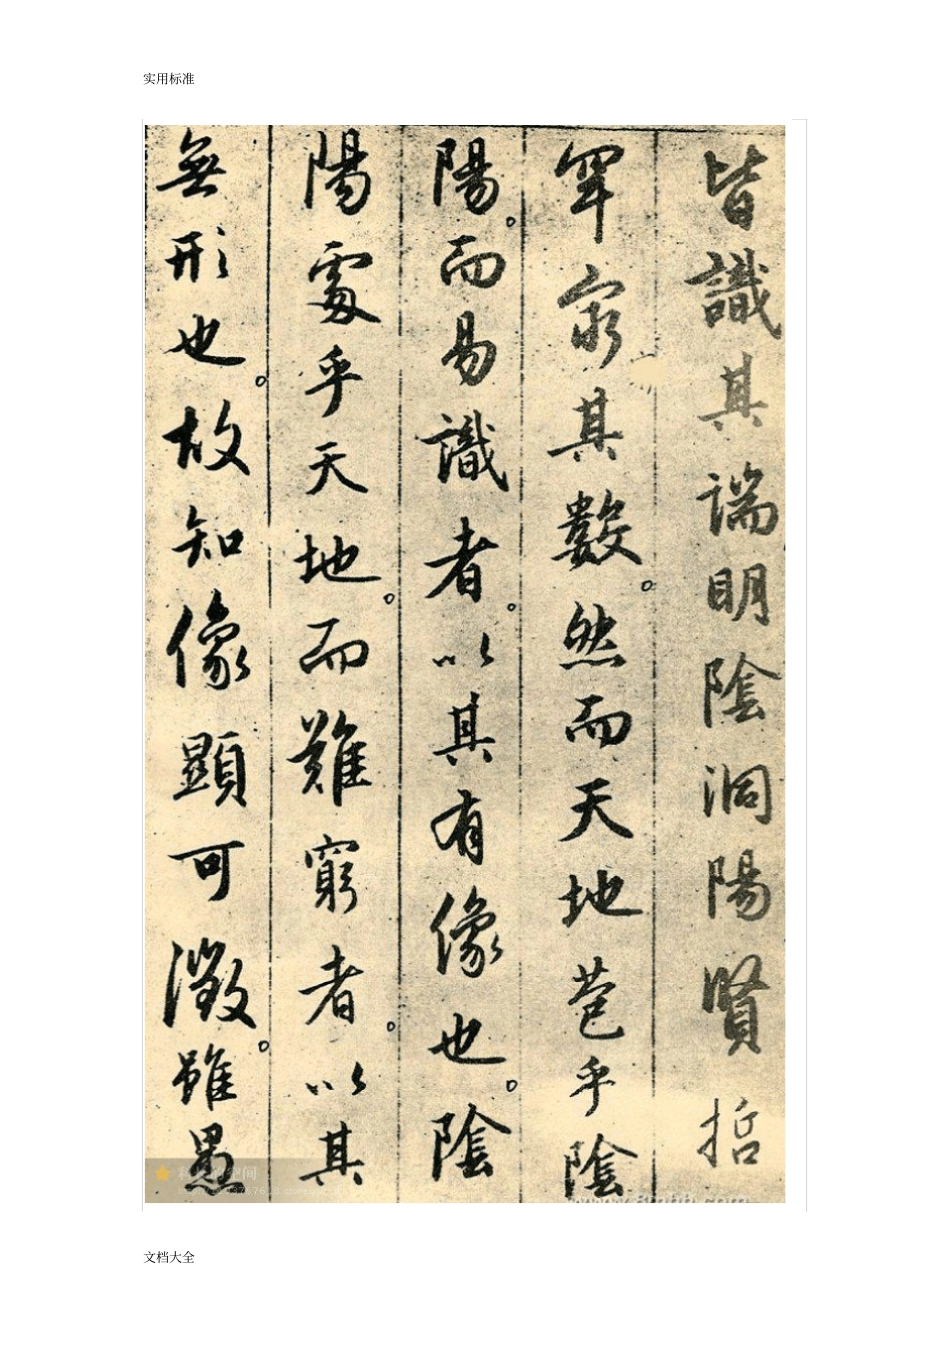 实用标准
皆識其端明陰洞陽賢哲
罕窮其數。然而天地苞乎陰
陽。而易識者。以其有像也。陰
陽處乎天地。而難窮者。以其
無形也。故知像顯可徵。雖愚
文档大全